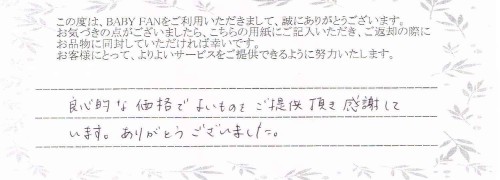 この度は、BABY FANをご利用いただきまして、誠にありがとうございます。
お気づきの点がございましたら、こちらの用紙にご記入いただき、ご返却の際に
お品物に同封していただければ幸いです。
お客様にとって、よりよいサービスをご提供できるように努力いたします。
良心的な価格でよいものをご提供頂き感謝して
います。ありがとうございました。